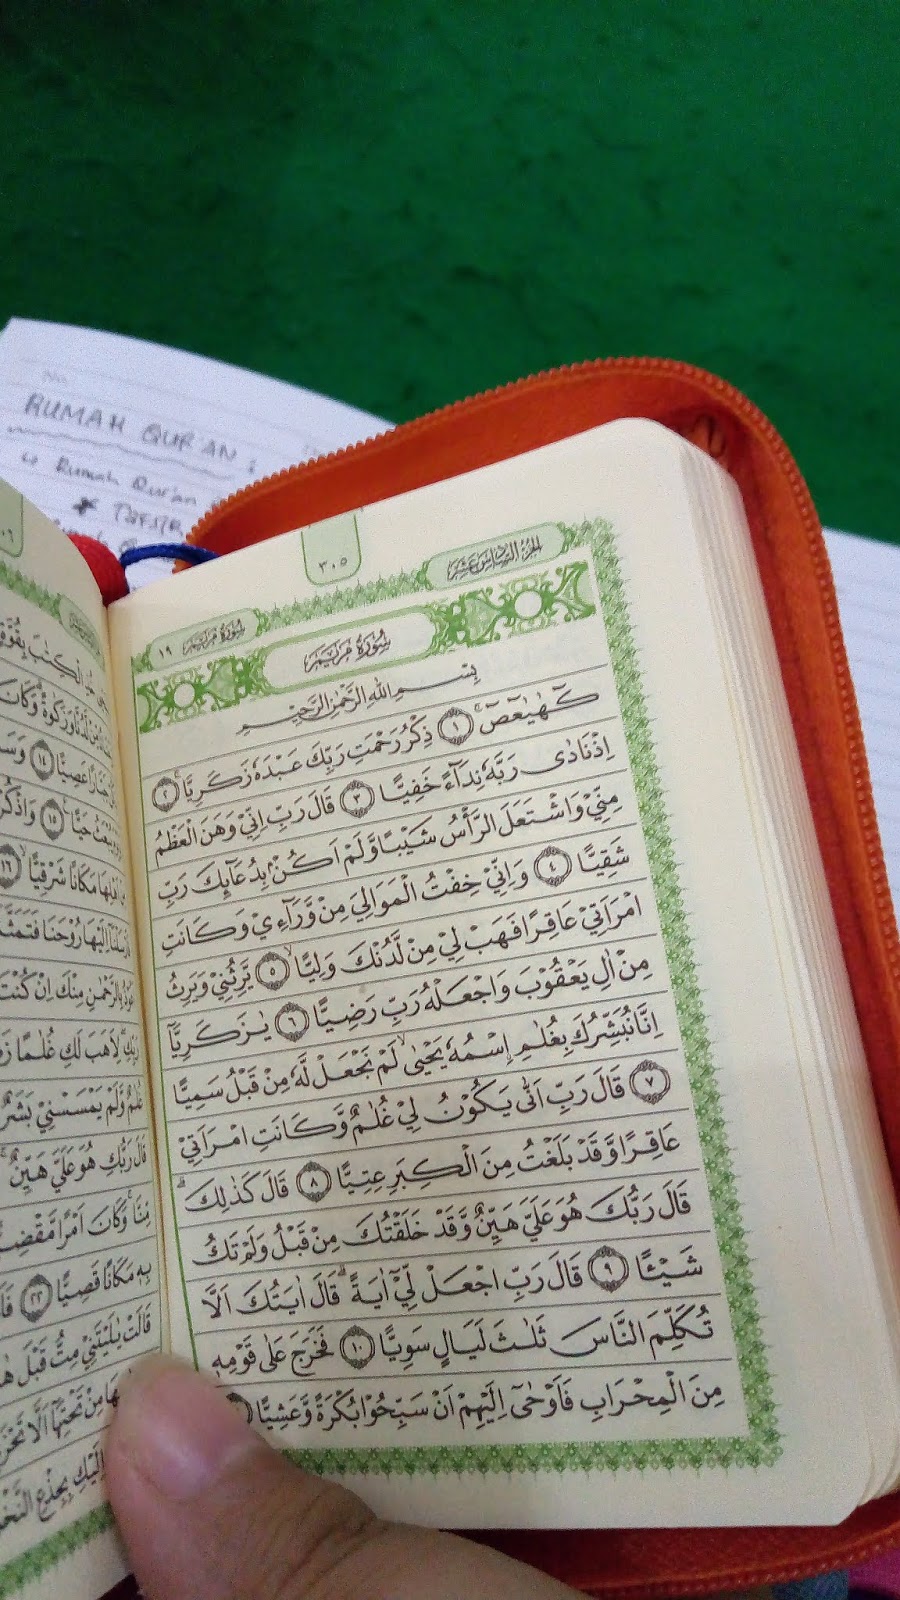 RUMAH QUR'AN :
Rumah Qur'an
TAFSIR
الجزء السادس عشر
٣٠٥
سورة مريم ١٩
سورة مريم
بِسْمِ اللهِ الرَّحْمٰنِ الرَّحِيْمِ
كۤهٰيٰعۤصۤ ۚ ١ ذِكْرُ رَحْمَتِ رَبِّكَ عَبْدَهٗ زَكَرِيَّا ۚ ٢
اِذْ نَادٰى رَبَّهٗ نِدَاۤءً خَفِيًّا ٣ قَالَ رَبِّ اِنِّيْ وَهَنَ الْعَظْمُ
مِنِّيْ وَاشْتَعَلَ الرَّأْسُ شَيْبًا وَّلَمْ اَكُنْۢ بِدُعَاۤىِٕكَ رَبِّ
شَقِيًّا ٤ وَاِنِّيْ خِفْتُ الْمَوَالِيَ مِنْ وَّرَاۤءِيْ وَكَانَتِ
امْرَاَتِيْ عَاقِرًا فَهَبْ لِيْ مِنْ لَّدُنْكَ وَلِيًّا ۙ ٥ يَّرِثُنِيْ وَيَرِثُ
مِنْ اٰلِ يَعْقُوْبَ وَاجْعَلْهُ رَبِّ رَضِيًّا ٦ يٰزَكَرِيَّآ
اِنَّا نُبَشِّرُكَ بِغُلٰمِ ِۨاسْمُهٗ يَحْيٰىۙ لَمْ نَجْعَلْ لَّهٗ مِنْ قَبْلُ سَمِيًّا
٧ قَالَ رَبِّ اَنّٰى يَكُوْنُ لِيْ غُلٰمٌ وَّكَانَتِ امْرَاَتِيْ
عَاقِرًا وَّقَدْ بَلَغْتُ مِنَ الْكِبَرِ عِتِيًّا ٨ قَالَ كَذٰلِكَۗ
قَالَ رَبُّكَ هُوَ عَلَيَّ هَيِّنٌ وَّقَدْ خَلَقْتُكَ مِنْ قَبْلُ وَلَمْ تَكُ
شَيْـًٔا ٩ قَالَ رَبِّ اجْعَلْ لِّيْٓ اٰيَةً ۗقَالَ اٰيَتُكَ اَلَّا
تُكَلِّمَ النَّاسَ ثَلٰثَ لَيَالٍ سَوِيًّا ١٠ فَخَرَجَ عَلٰى قَوْمِهٖ
مِنَ الْمِحْرَابِ فَاَوْحٰىٓ اِلَيْهِمْ اَنْ سَبِّحُوْا بُكْرَةً وَّعَشِيًّا
وَّكَانَ
عَصِيًّا ١٤
حَيًّا ۚ ١٥ وَاذْكُرْ
مَكَانًا شَرْقِيًّا ۙ ١٦
اِلَيْهَا رُوْحَنَا فَتَمَثَّلَ
بِالرَّحْمٰنِ مِنْكَ اِنْ كُنْتَ
رَبِّكِۖ لِاَهَبَ لَكِ غُلٰمًا
غُلٰمٌ وَّلَمْ يَمْسَسْنِيْ بَشَرٌ
قَالَ رَبُّكِ هُوَ عَلَيَّ هَيِّنٌۚ
مِّنَّاۚ وَكَانَ اَمْرًا مَّقْضِيًّا
بِهٖ مَكَانًا قَصِيًّا ٢٢
قَالَتْ يٰلَيْتَنِيْ مِتُّ قَبْلَ
مِنْ تَحْتِهَآ اَلَّا تَحْزَنِيْ
اِلَيْكِ بِجِذْعِ النَّخْلَةِ